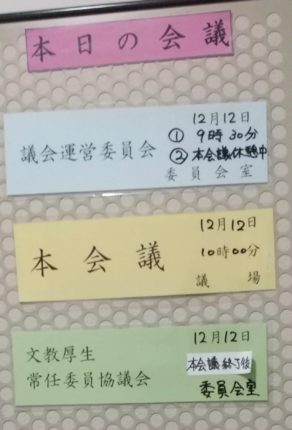 本日の会議
12月12日
① 9時30分
議会運営委員会
② 本会議休憩中
委員会室
12月12日
本会議
10時00分
議場
12月12日
文教厚生
本会議終了後
常任委員協議会
委員会室